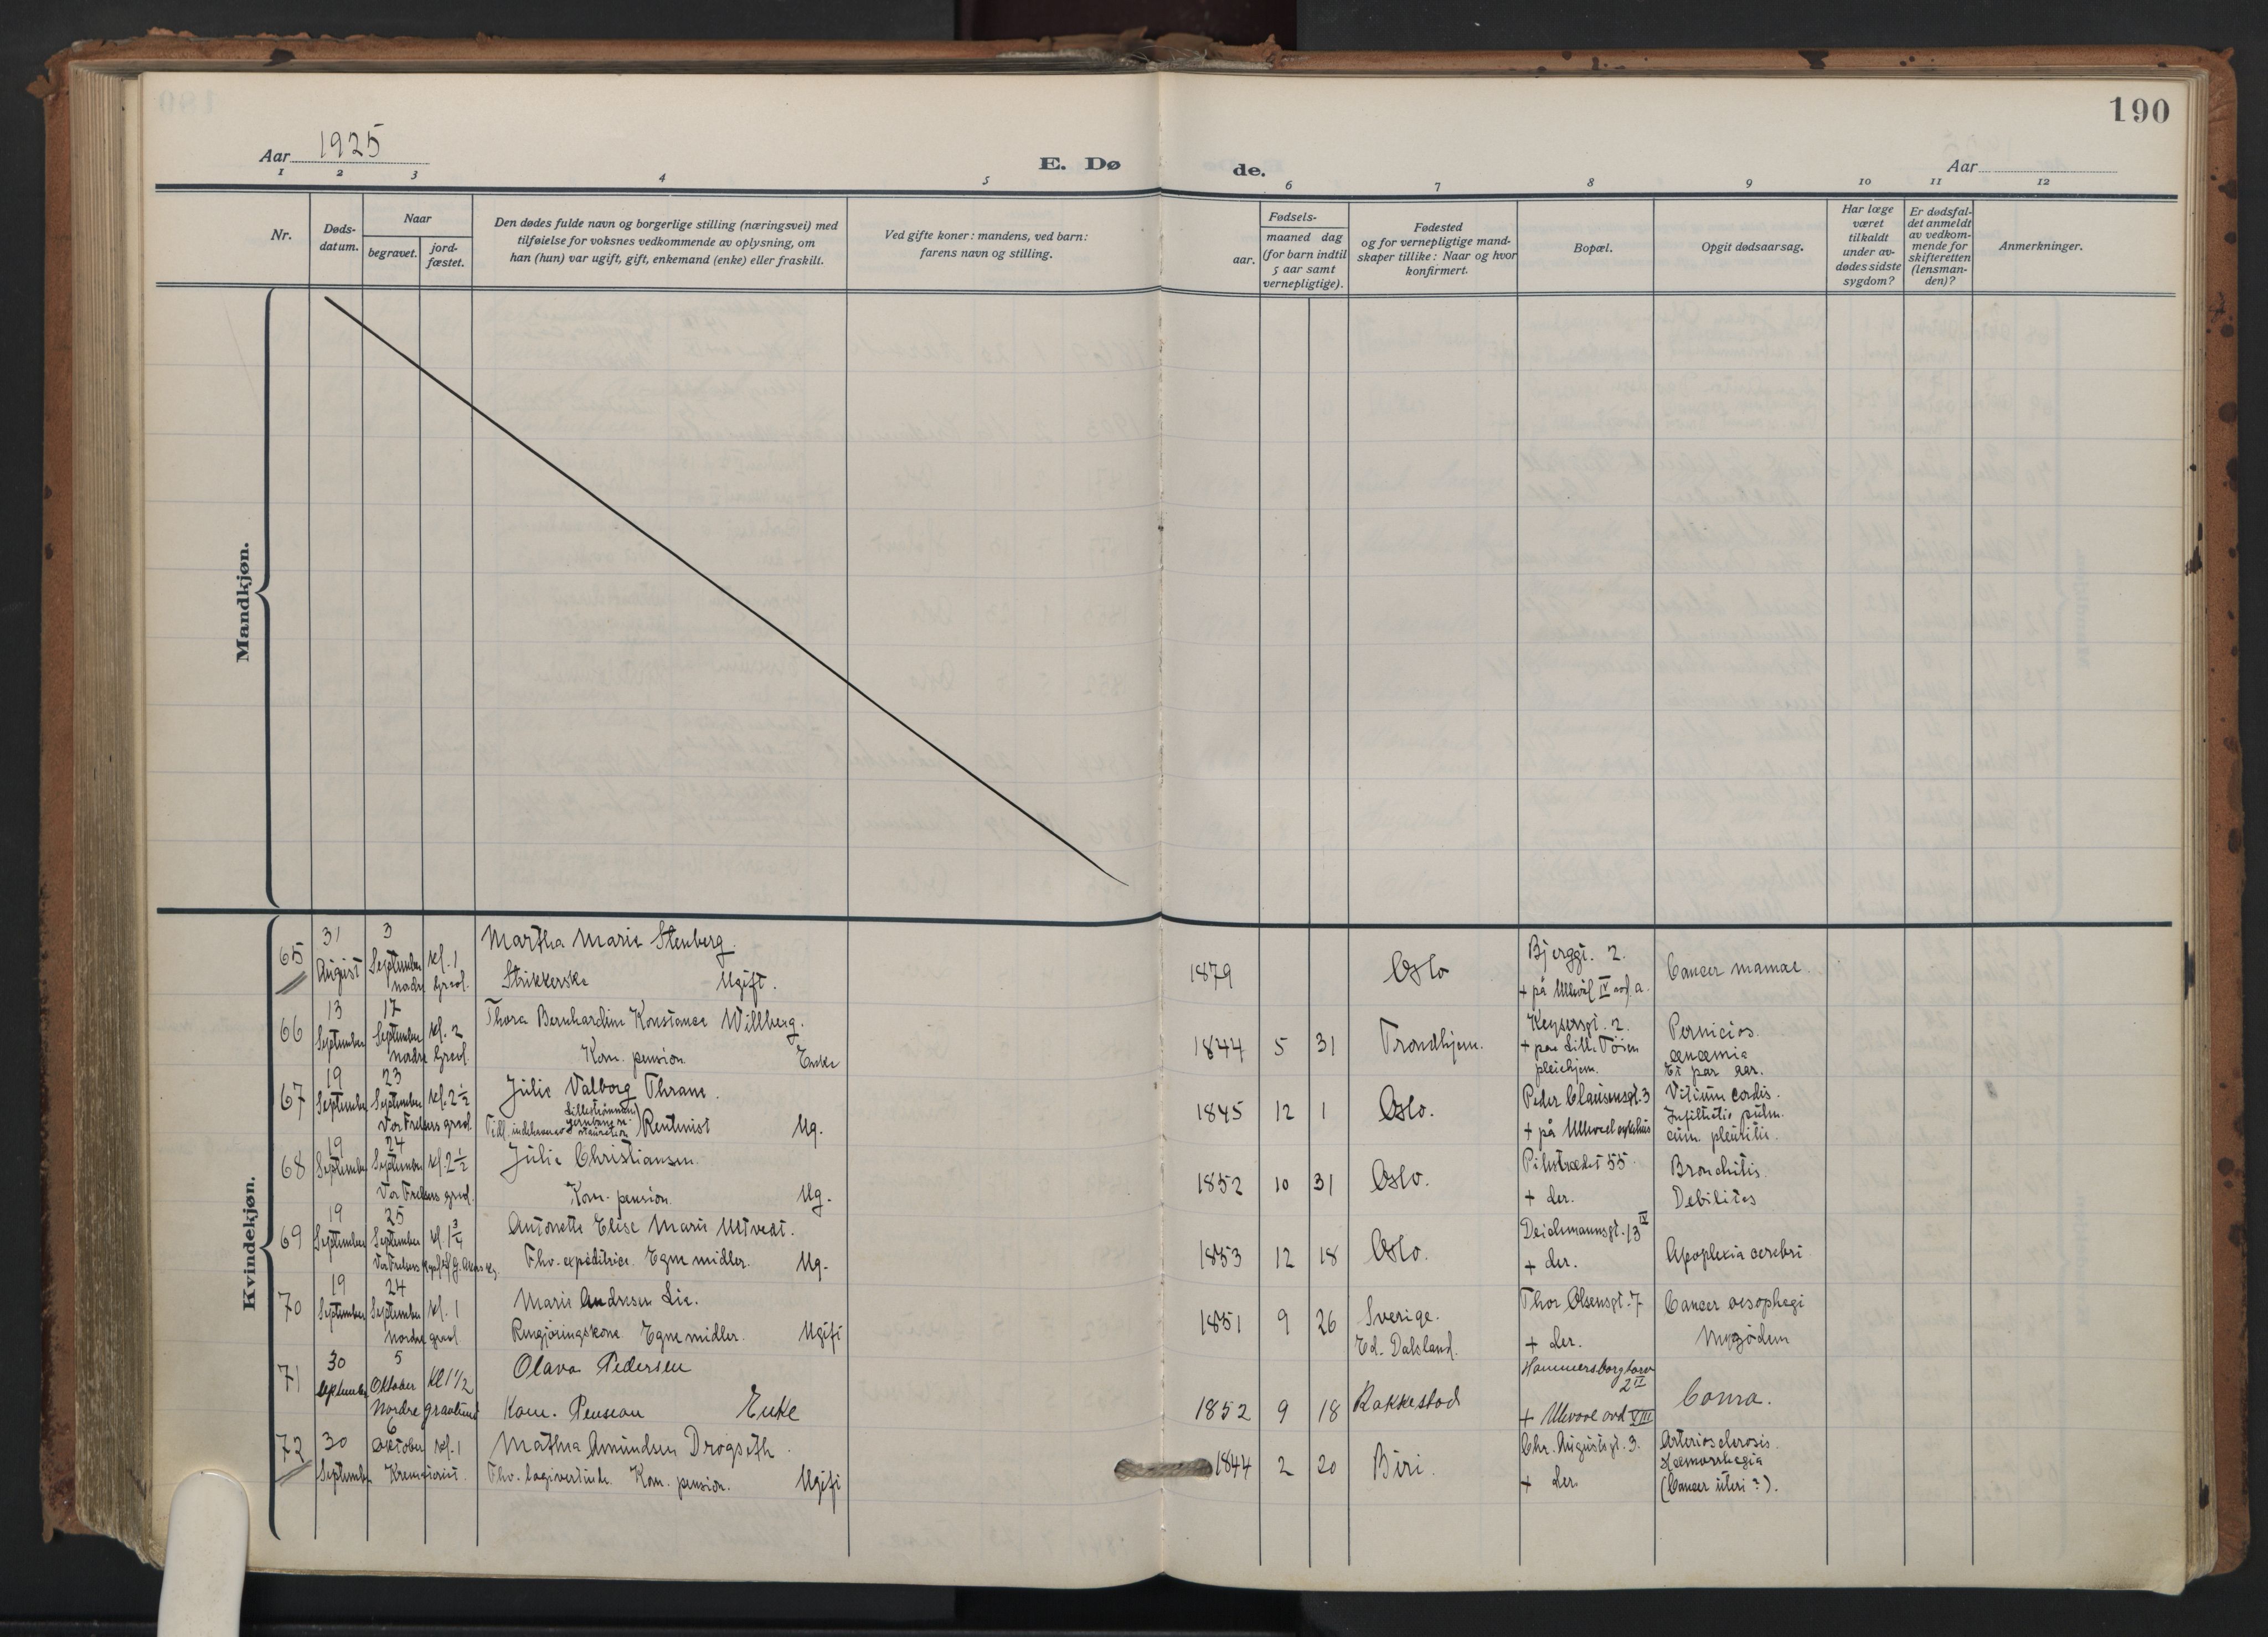 190
Aar 1925
E. Dø
de.
Aar
1 2 3 4 5 6 7 8 9 10 11 12
Nr.
Døds-
datum.
Naar
begravet.
jord-
fæstet.
Den dødes fulde navn og borgerlige stilling (næringsvei) med
tilføielse for voksnes vedkommende av oplysning, om
han (hun) var ugift, gift, enkemand (enke) eller fraskilt.
Ved gifte koner: mandens, ved barn:
farens navn og stilling.
Fødsels-
aar.
maaned dag
(for barn indtil
5 aar samt
vernepligtige).
Fødested
og for vernepligtige mand-
skaper tillike: Naar og hvor
konfirmert.
Bopæl.
Opgit dødsaarsag.
Har læge
været
tilkaldt
under av-
dødes sidste
sygdom?
Er dødsfal-
det anmeldt
av vedkom-
mende for
skifteretten
(lensman-
den)?
Anmerkninger.
Mandkjøn.
Kvindekjøn.
65 31 August 3 September kl. 1 Martha Marie Stenberg. Bjerggt. 2.
nordre Gravl. Strikkerske Ugift. 1879 Oslo + på Ullevål IV avd. a. Cancer mamae.
66 13 September 17 September kl. 2 Thora Bernhardine Konstance Willberg. Keysersgt. 2. Pernicios.
nordre Gravl. Kom. pension. Enke 1844 5 31 Trondhjem. + paa Lille Töien anæmia
pleiehjem. Et par aar.
67 19 September 23 September kl. 2½ Julie Valborg Thrane. Peder Clausensgt. 3 Vitium cordis.
Vor Frelsers gravl. Rentenist Ug. 1845 12 1 Oslo. Infiltratio pulm.
+ på Ullevaal sykehus cum. pleuritis.
68 19 September 24 September kl. 2½ Julie Christiansen. Pilestrædet 55. Bronchitis.
Vor Frelsers gravl. Kom. pension. Ug. 1852 10 31 Oslo. + der. Debilitas
69 19 September 25 September kl. 1¾ Antonette Elise Marie Utvedt. Deichmannsgt. 13 IV
Vor Frelsers Fhv. expeditrice. Egne midler. Ug. 1853 12 18 Oslo. + der. Apoplexia cerebri
70 19 September 24 September kl. 1 Marie Andresen Lie. Thor Olsensgt. 7 Cancer oesophagi
Nordre gravl. Rengjöringskone. Egne midler. Ugift 1851 9 26 Sverige. + der.
Ed. Dalsland.
71 30 September 5 Oktober Kl 1½ Olava Pedersen Hammersborg torv
2 II
Nordre gravlund Kom. Pension Enke 1852 9 18 Rakkestad + Ullevaal avd VIII
72 30 September 6 Oktober kl. 1 Mathea Amundsen Drogseth. Chr. Augustsgt. 3. Arteriosclerosis.
Krematoriet. Fhv. logivertinde. Kom. pension. Ugift 1844 2 20 Biri. + der. Hæmorrhagia
(Cancer uteri?).